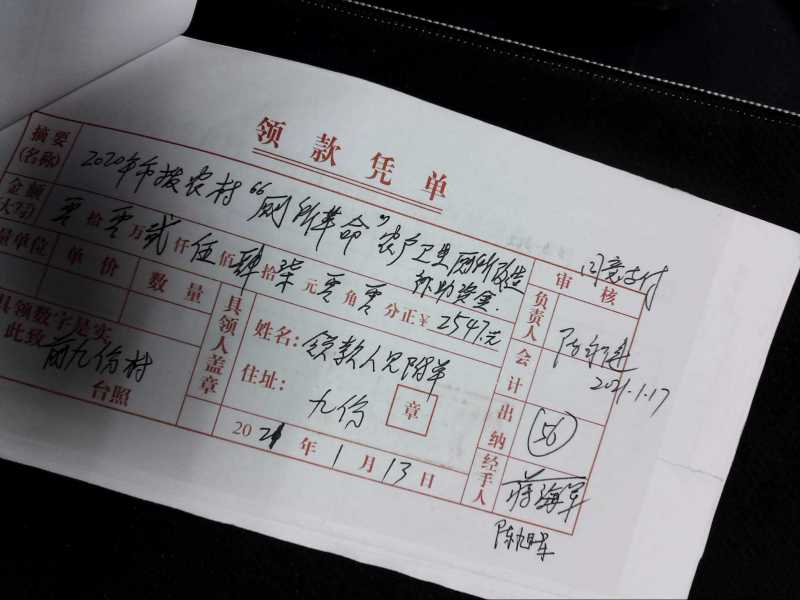 领款凭单
摘要(名称) 2020年市拨农村“厕所革命”农户卫生厕所改造
补助资金.
金额(大写) 零拾零万贰仟伍佰肆拾柒元零角零分正¥2547.元
量单位 单价 数量
具领数字是实
此致
前九份村
台照
具领人盖章
姓名：领款人见附单
住址：九份
章
2021年1月13日
审核
同意支付
负责人
2021.1.17
会计
出纳
(56)
经手人
蒋海军
陈旭东